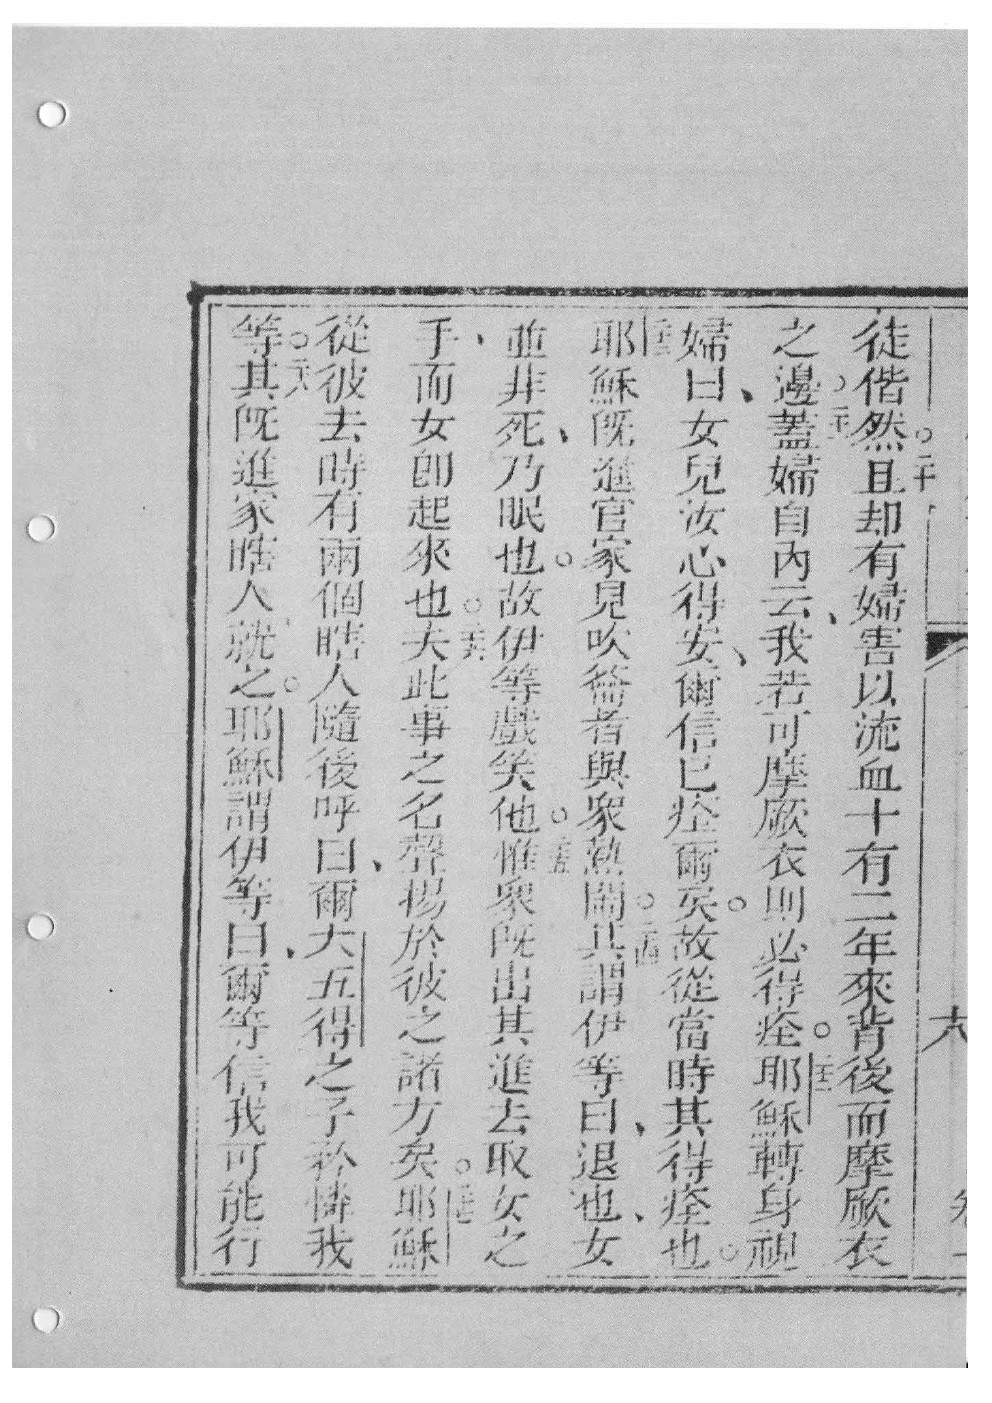 徒偕然○二十且却有婦害以流血十有二年來背後而摩厥衣
之邊○二十一蓋婦自內云、我若可摩厥衣則必得痊○二十二耶穌轉身視
婦曰、女兒汝心得安、爾信已痊爾矣○故從當時其得痊也○
二十三耶穌既進官家見吹籥者與眾熱鬧○二十四其謂伊等曰、退也、女
並非死、乃眠也○故伊等戲笑他○二十五惟眾既出其進去取女之
手、而女卽起來也○二十六夫此事之名聲揚於彼之諸方矣○二十七耶穌
從彼去時有兩個瞎人隨後呼曰、爾大五得之子矜憐我
等○二十八其既進家瞎人就之○耶穌謂伊等曰、爾等信我可能行
六